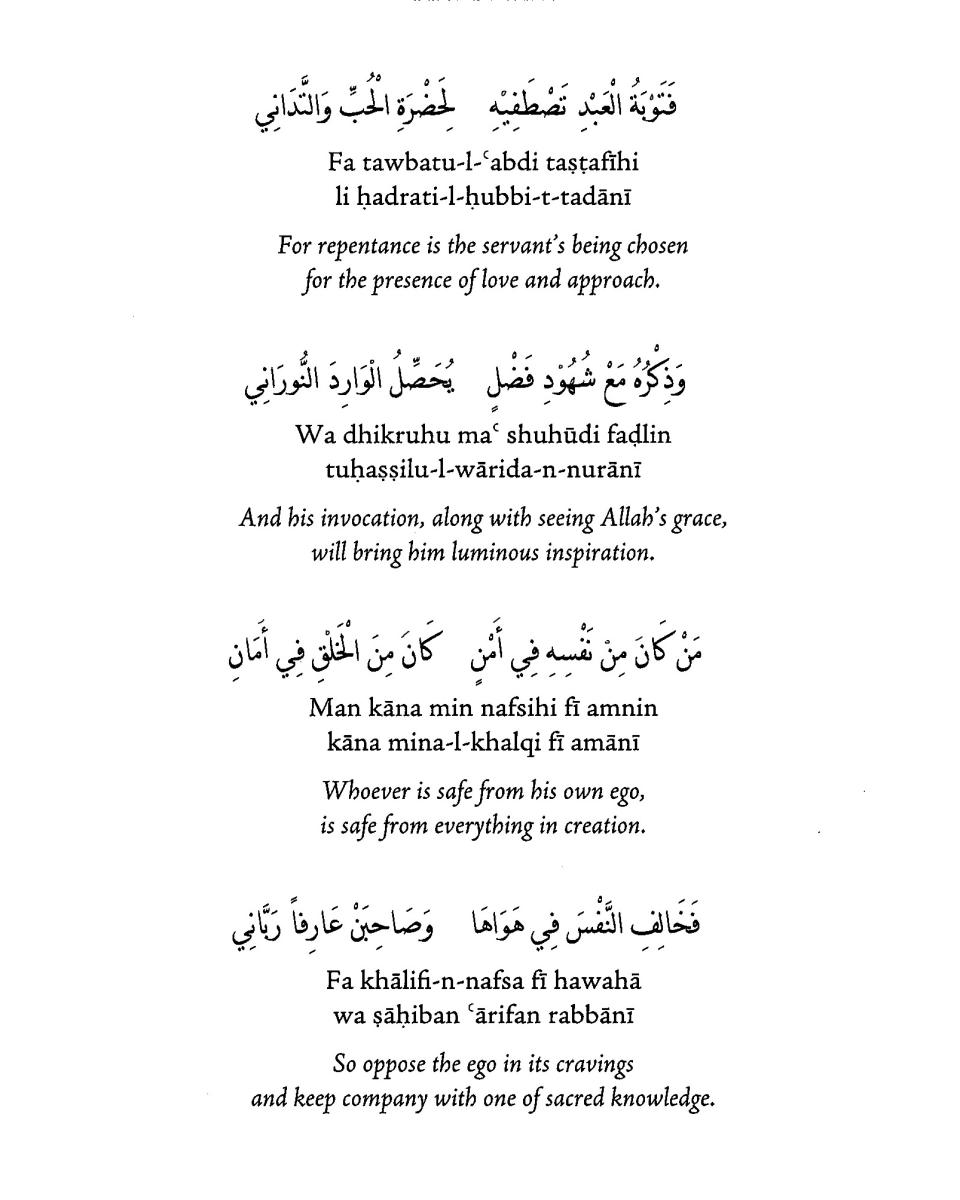 فَتَوْبَةُ الْعَبْدِ تَصْطَفِيْهِ لِحَضْرَةِ الْحُبِّ وَالتَّدَانِي
Fa tawbatu-l-ʿabdi taṣṭafīhi
li ḥadrati-l-ḥubbi-t-tadānī
For repentance is the servant's being chosen
for the presence of love and approach.
وَذِكْرُهُ مَعْ شُهُوْدِ فَضْلٍ يُحَصِّلُ الْوَارِدَ النُّورَانِي
Wa dhikruhu maʿ shuhūdi faḍlin
tuḥaṣṣilu-l-wārida-n-nurānī
And his invocation, along with seeing Allah's grace,
will bring him luminous inspiration.
مَنْ كَانَ مِنْ نَفْسِهِ فِي أَمْنٍ كَانَ مِنَ الْخَلْقِ فِي أَمَانِ
Man kāna min nafsihi fī amnin
kāna mina-l-khalqi fī amānī
Whoever is safe from his own ego,
is safe from everything in creation.
فَخَالِفِ النَّفْسَ فِي هَوَاهَا وَصَاحِبَنْ عَارِفاً رَبَّانِي
Fa khālifi-n-nafsa fī hawahā
wa ṣāḥiban ʿārifan rabbānī
So oppose the ego in its cravings
and keep company with one of sacred knowledge.